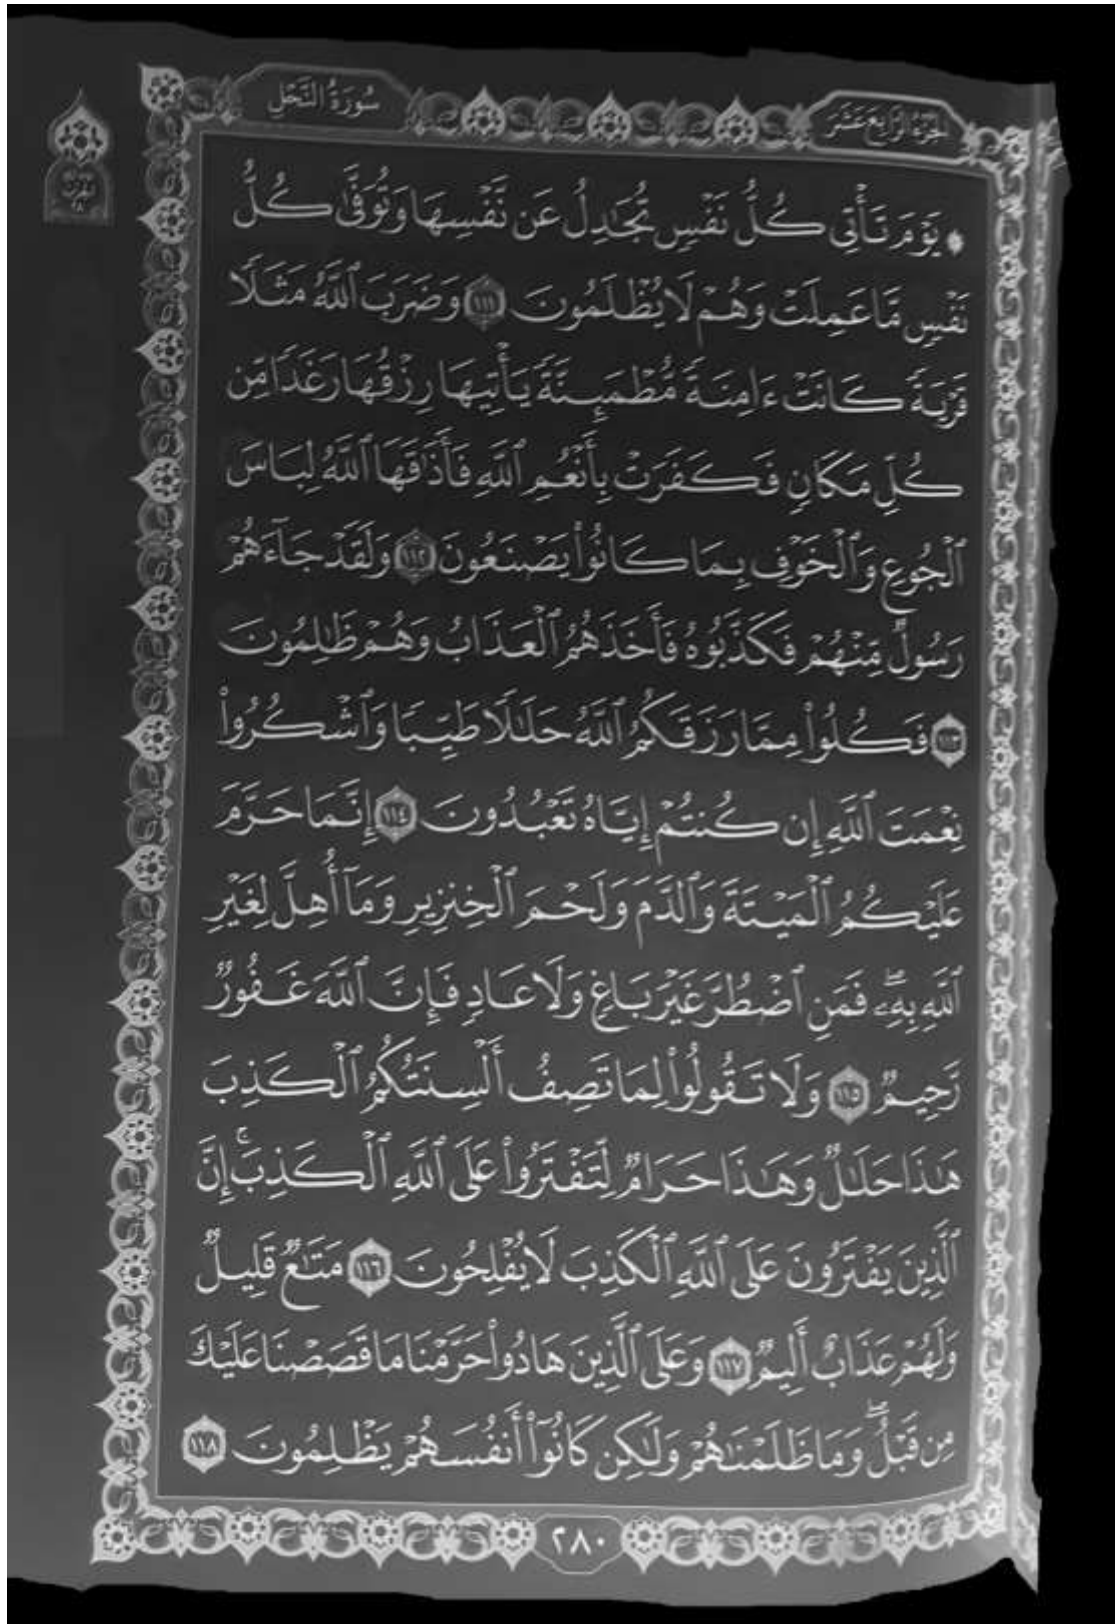 الجزء الرابع عشر
سورة النحل
۞ يَوْمَ تَأْتِي كُلُّ نَفْسٍ تُجَٰدِلُ عَن نَّفْسِهَا وَتُوَفَّىٰ كُلُّ
نَفْسٍ مَّا عَمِلَتْ وَهُمْ لَا يُظْلَمُونَ ١١١ وَضَرَبَ ٱللَّهُ مَثَلًا
قَرْيَةً كَانَتْ ءَامِنَةً مُّطْمَئِنَّةً يَأْتِيهَا رِزْقُهَا رَغَدًا مِّن
كُلِّ مَكَانٍ فَكَفَرَتْ بِأَنْعُمِ ٱللَّهِ فَأَذَٰقَهَا ٱللَّهُ لِبَاسَ
ٱلْجُوعِ وَٱلْخَوْفِ بِمَا كَانُوا۟ يَصْنَعُونَ ١١٢ وَلَقَدْ جَآءَهُمْ
رَسُولٌ مِّنْهُمْ فَكَذَّبُوهُ فَأَخَذَهُمُ ٱلْعَذَابُ وَهُمْ ظَٰلِمُونَ
١١٣ فَكُلُوا۟ مِمَّا رَزَقَكُمُ ٱللَّهُ حَلَٰلًا طَيِّبًا وَٱشْكُرُوا۟
نِعْمَتَ ٱللَّهِ إِن كُنتُمْ إِيَّاهُ تَعْبُدُونَ ١١٤ إِنَّمَا حَرَّمَ
عَلَيْكُمُ ٱلْمَيْتَةَ وَٱلدَّمَ وَلَحْمَ ٱلْخِنزِيرِ وَمَآ أُهِلَّ لِغَيْرِ
ٱللَّهِ بِهِۦۖ فَمَنِ ٱضْطُرَّ غَيْرَ بَاغٍ وَلَا عَادٍ فَإِنَّ ٱللَّهَ غَفُورٌ
رَّحِيمٌ ١١٥ وَلَا تَقُولُوا۟ لِمَا تَصِفُ أَلْسِنَتُكُمُ ٱلْكَذِبَ
هَٰذَا حَلَٰلٌ وَهَٰذَا حَرَامٌ لِّتَفْتَرُوا۟ عَلَى ٱللَّهِ ٱلْكَذِبَۚ إِنَّ
ٱلَّذِينَ يَفْتَرُونَ عَلَى ٱللَّهِ ٱلْكَذِبَ لَا يُفْلِحُونَ ١١٦ مَتَٰعٌ قَلِيلٌ
وَلَهُمْ عَذَابٌ أَلِيمٌ ١١٧ وَعَلَى ٱلَّذِينَ هَادُوا۟ حَرَّمْنَا مَا قَصَصْنَا عَلَيْكَ
مِن قَبْلُۖ وَمَا ظَلَمْنَٰهُمْ وَلَٰكِن كَانُوٓا۟ أَنفُسَهُمْ يَظْلِمُونَ ١١٨
٢٨٠